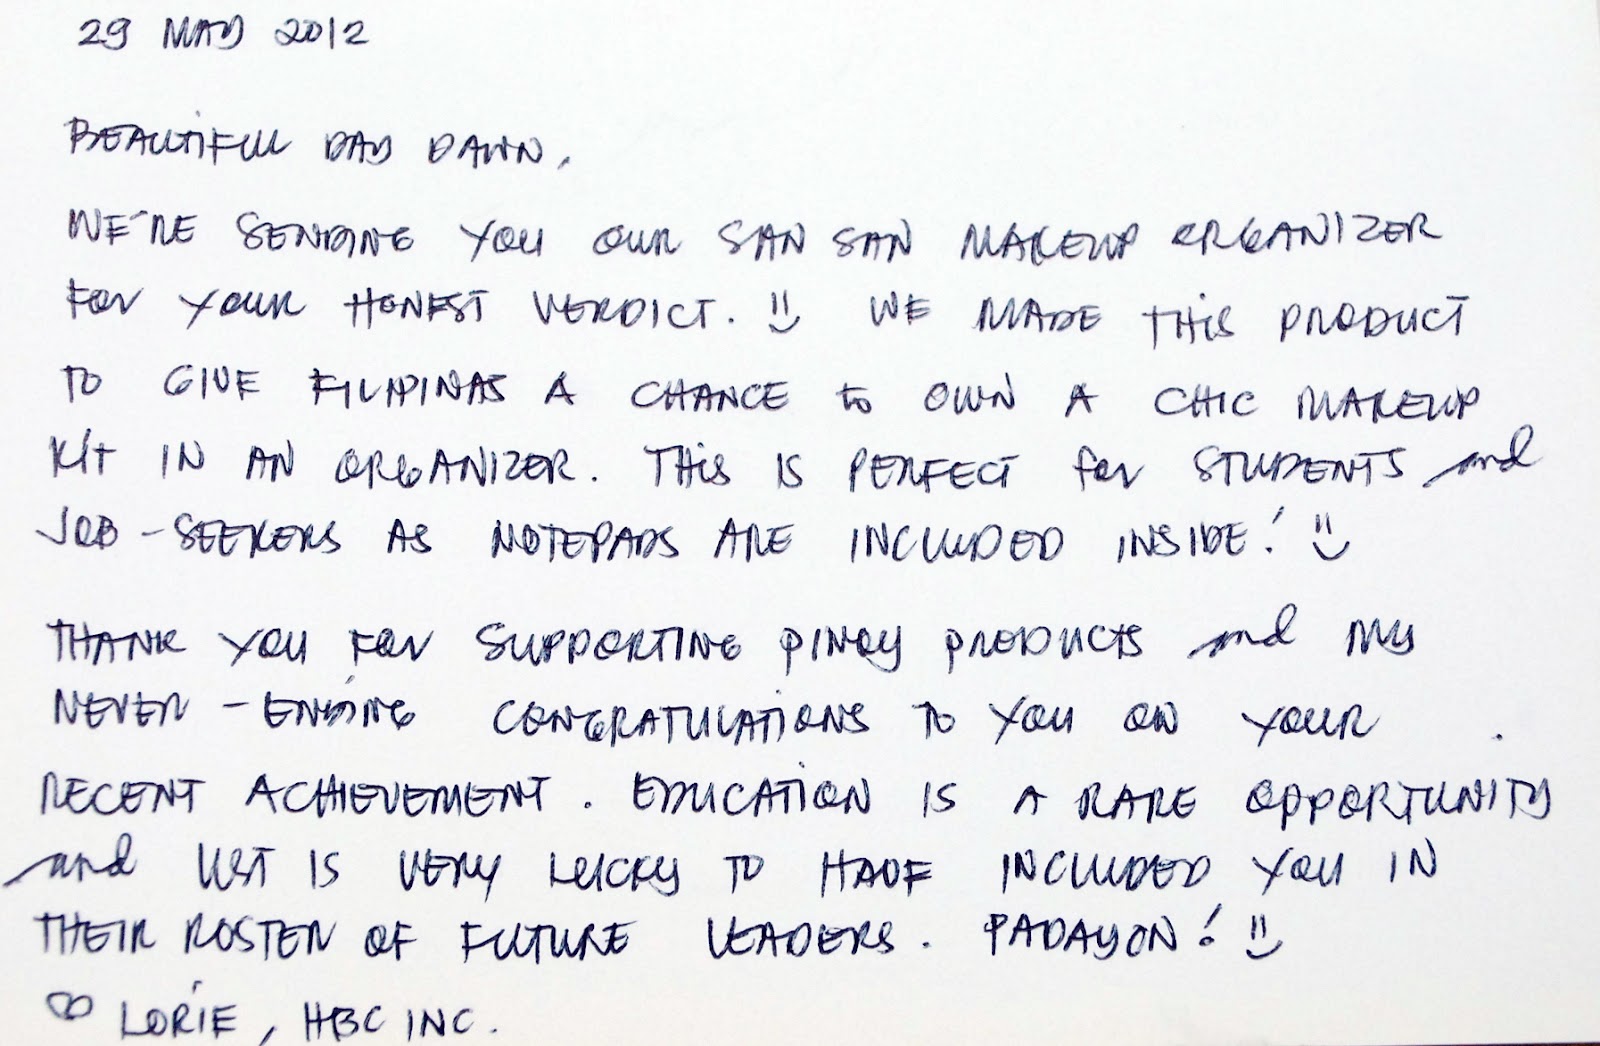 29 MAY 2012
BEAUTIFUL DAY DAWN,
WE'RE SENDING YOU OUR SAN SAN MAKEUP ORGANIZER
FOR YOUR HONEST VERDICT. WE MADE THIS PRODUCT
TO GIVE FILIPINAS A CHANCE to OWN A CHIC MAKEUP
KIT IN AN ORGANIZER. THIS IS PERFECT for STUDENTS and
JOB-SEEKERS AS NOTEPADS ARE INCLUDED INSIDE!
THANK YOU FOR SUPPORTING PINOY PRODUCTS and MY
NEVER-ENDING CONGRATULATIONS TO YOU ON YOUR
RECENT ACHIEVEMENT. EDUCATION IS A RARE OPPORTUNITY
and UST IS VERY LUCKY TO HAVE INCLUDED YOU IN
THEIR ROSTER OF FUTURE LEADERS. PADAYON!
♡ LORIE, HBC INC.